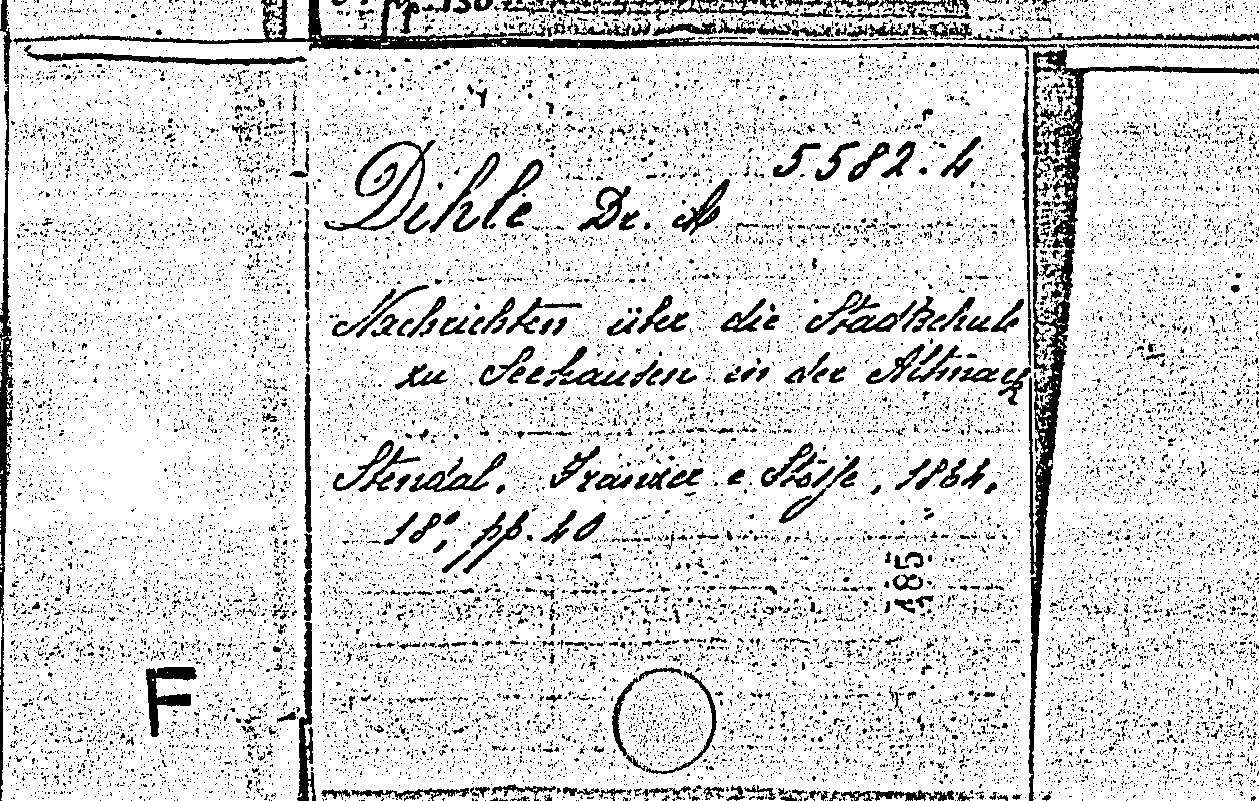 pp. 130.
5582.4
Dihle Dr. A
Nachrichten über die Stadtschule
zu Seehausen in der Altmark
Stendal. Franzen e Stosse, 1864.
18°, pp. 40
485
F